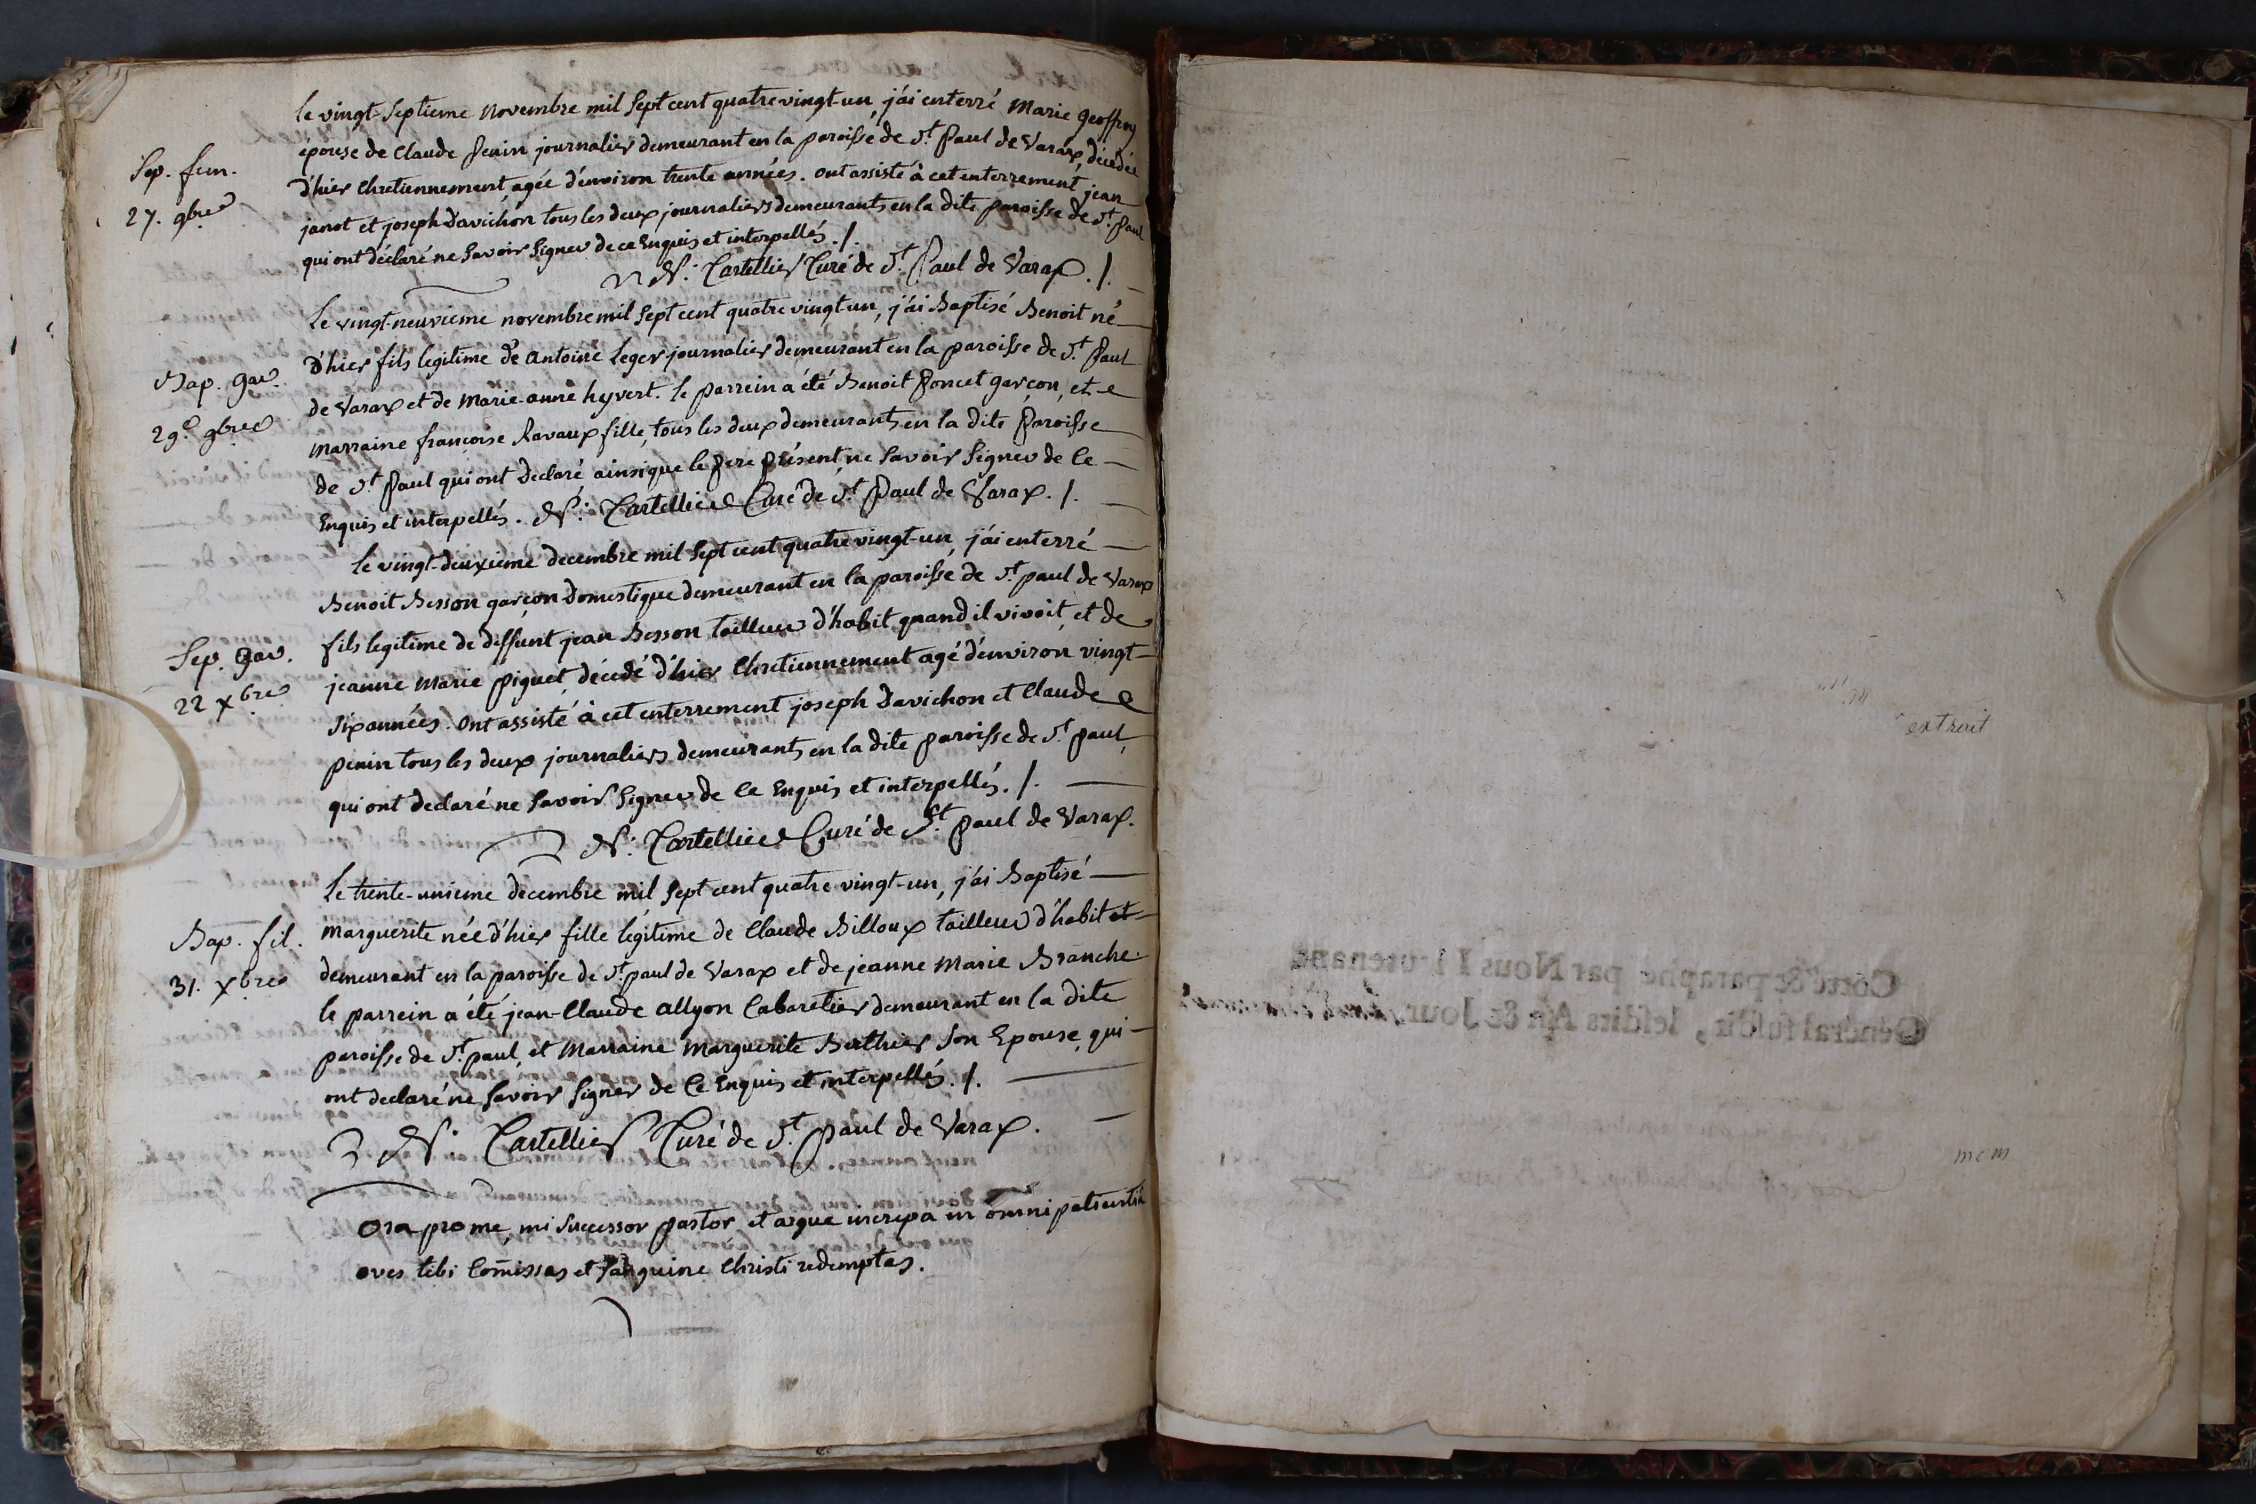 le vingt-septieme novembre mil sept cent quatre vingt-un, j'ai enterré Marie Geoffroy
Sep. fem.
27. 9bre
epouse de Claude Penin journalier demeurant en la paroisse de St. Paul de Varax, décedée
d'hier chretiennement, agée d'environ trente années. ont assisté à cet enterrement jean
janot et joseph Davichon tous les deux journaliers demeurants en la dite paroisse de St. Paul
qui ont déclaré ne savoir signer de ce enquis et interpellés ./.
N. Cartellier Curé de St. Paul de Varax ./.
Le vingt-neuvieme novembre mil sept cent quatre vingt-un, j'ai Baptisé Benoit né
Bap. gar.
29e. 9bre
d'hier fils legitime de Antoine leger journalier demeurant en la paroisse de St. Paul
de Varax et de Marie-anne hyvert. le parrein a été Benoit Poncet garçon, et
marraine françoise Ravaux fille, tous les deux demeurants en la dite Paroisse
de St. Paul qui ont declaré ainsi que le Pere présent ne savoir signer de ce
enquis et interpellés. N. Cartellier Curé de St. Paul de Varax. /.
le vingt-deuxieme decembre mil sept cent quatre vingt-un, j'ai enterré
Benoit Besson garçon domestique demeurant en la paroisse de St. paul de Varax
Sep. gar.
22 xbre
fils legitime de deffunt jean Besson tailleur d'habit, quand il vivoit, et de
jeanne Marie piquet, décedé d'hier chretiennement agé d'environ vingt-
six années. Ont assisté à cet enterrement joseph Davichon et Claude
penin tous les deux journaliers demeurants en la dite paroisse de St. paul,
qui ont declaré ne savoir signer de ce enquis et interpellés. /.
N. Cartellier Curé de St. Paul de Varax.
Le trente-unieme decembre mil sept cent quatre vingt-un, j'ai Baptisé
Bap. fil.
31. xbre
marguerite née d'hier fille légitime de Claude Billoux tailleur d'habit et
demeurant en la paroisse de St. paul de Varax et de jeanne Marie Branche.
le parrein a été jean-Claude allyon Cabaretier demeurant en la dite
paroisse de St. paul, et Marraine Marguerite Berthier son Epouse, qui
ont declaré ne savoir signer de ce enquis et interpellés. /.
N. Cartellier Curé de St. Paul de Varax.
Ora pro me, mi successor pastor, et argue increpa in omni patientiâ
oves tibi Comissas et sanguine Christi redemptas.
extrait
Cotté & paraphé par Nous Lieutenant
Général susdit, lesdits An & Jour.
mcm